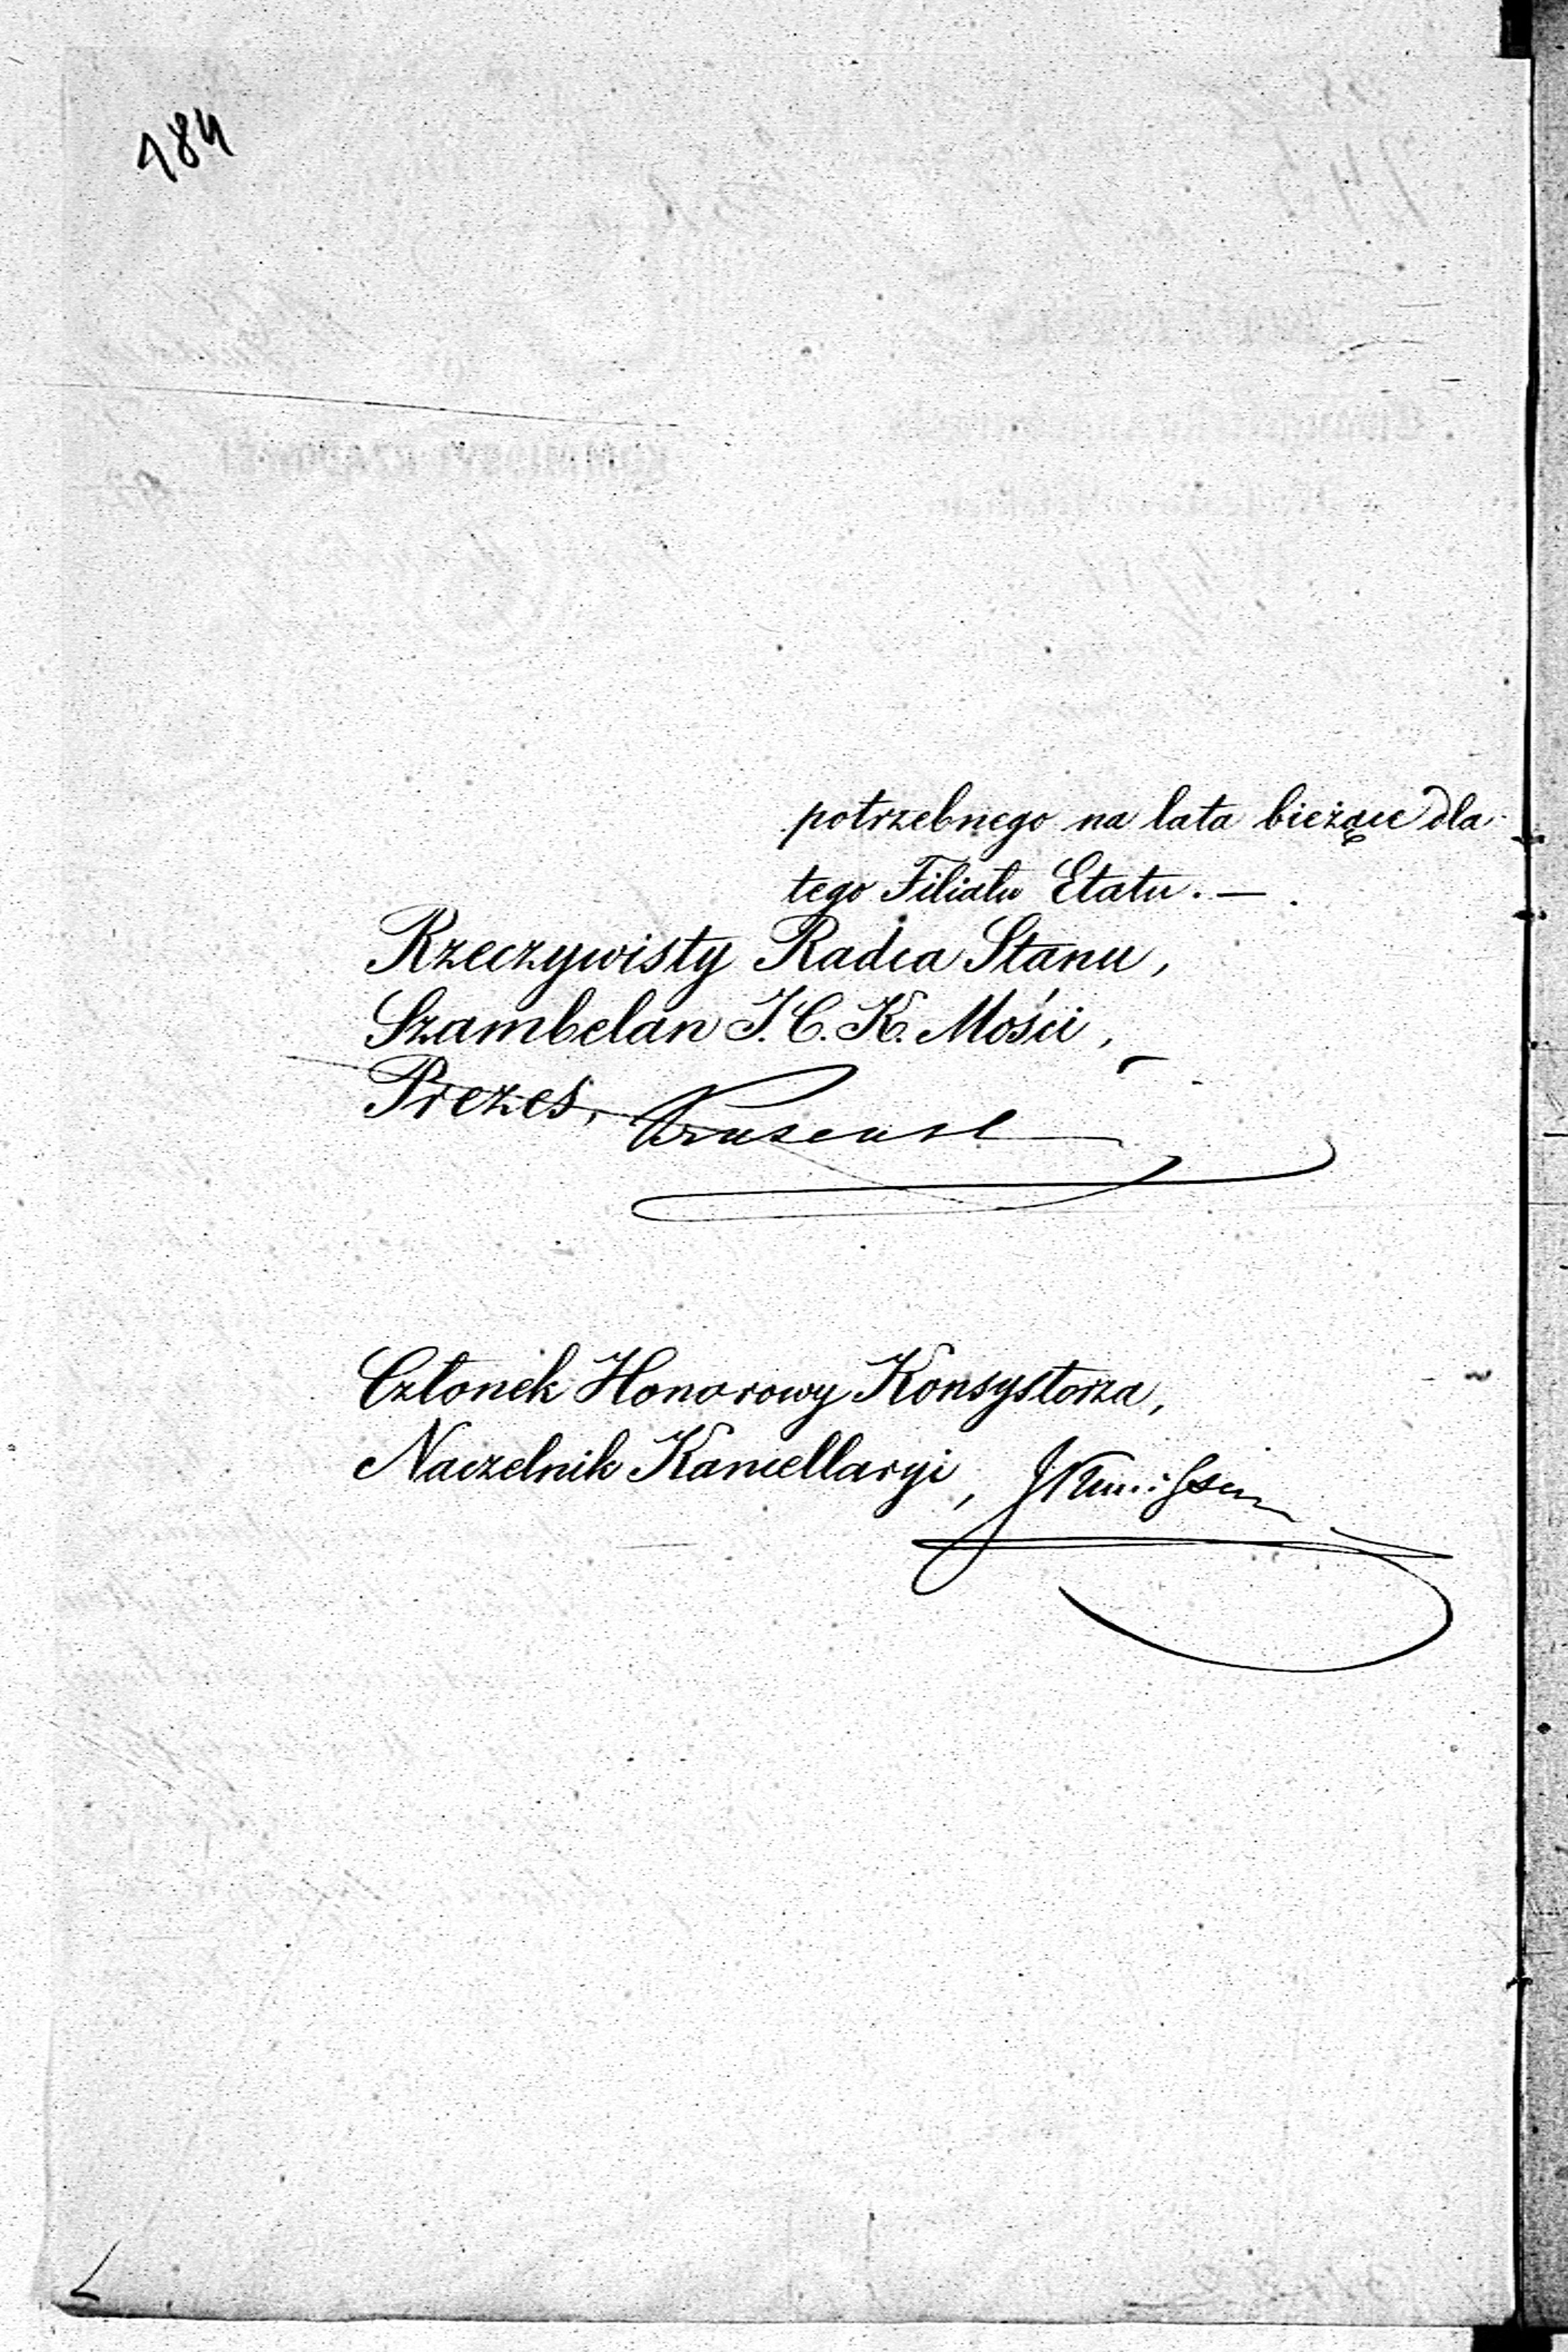 184
potrzebnego na lata bieżące dla
tego Filiału Etatu. —
Rzeczywisty Radca Stanu,
Szambelan J. C. K. Mości,
Prezes,
Członek Honorowy Konsystorza,
Naczelnik Kancellaryi,